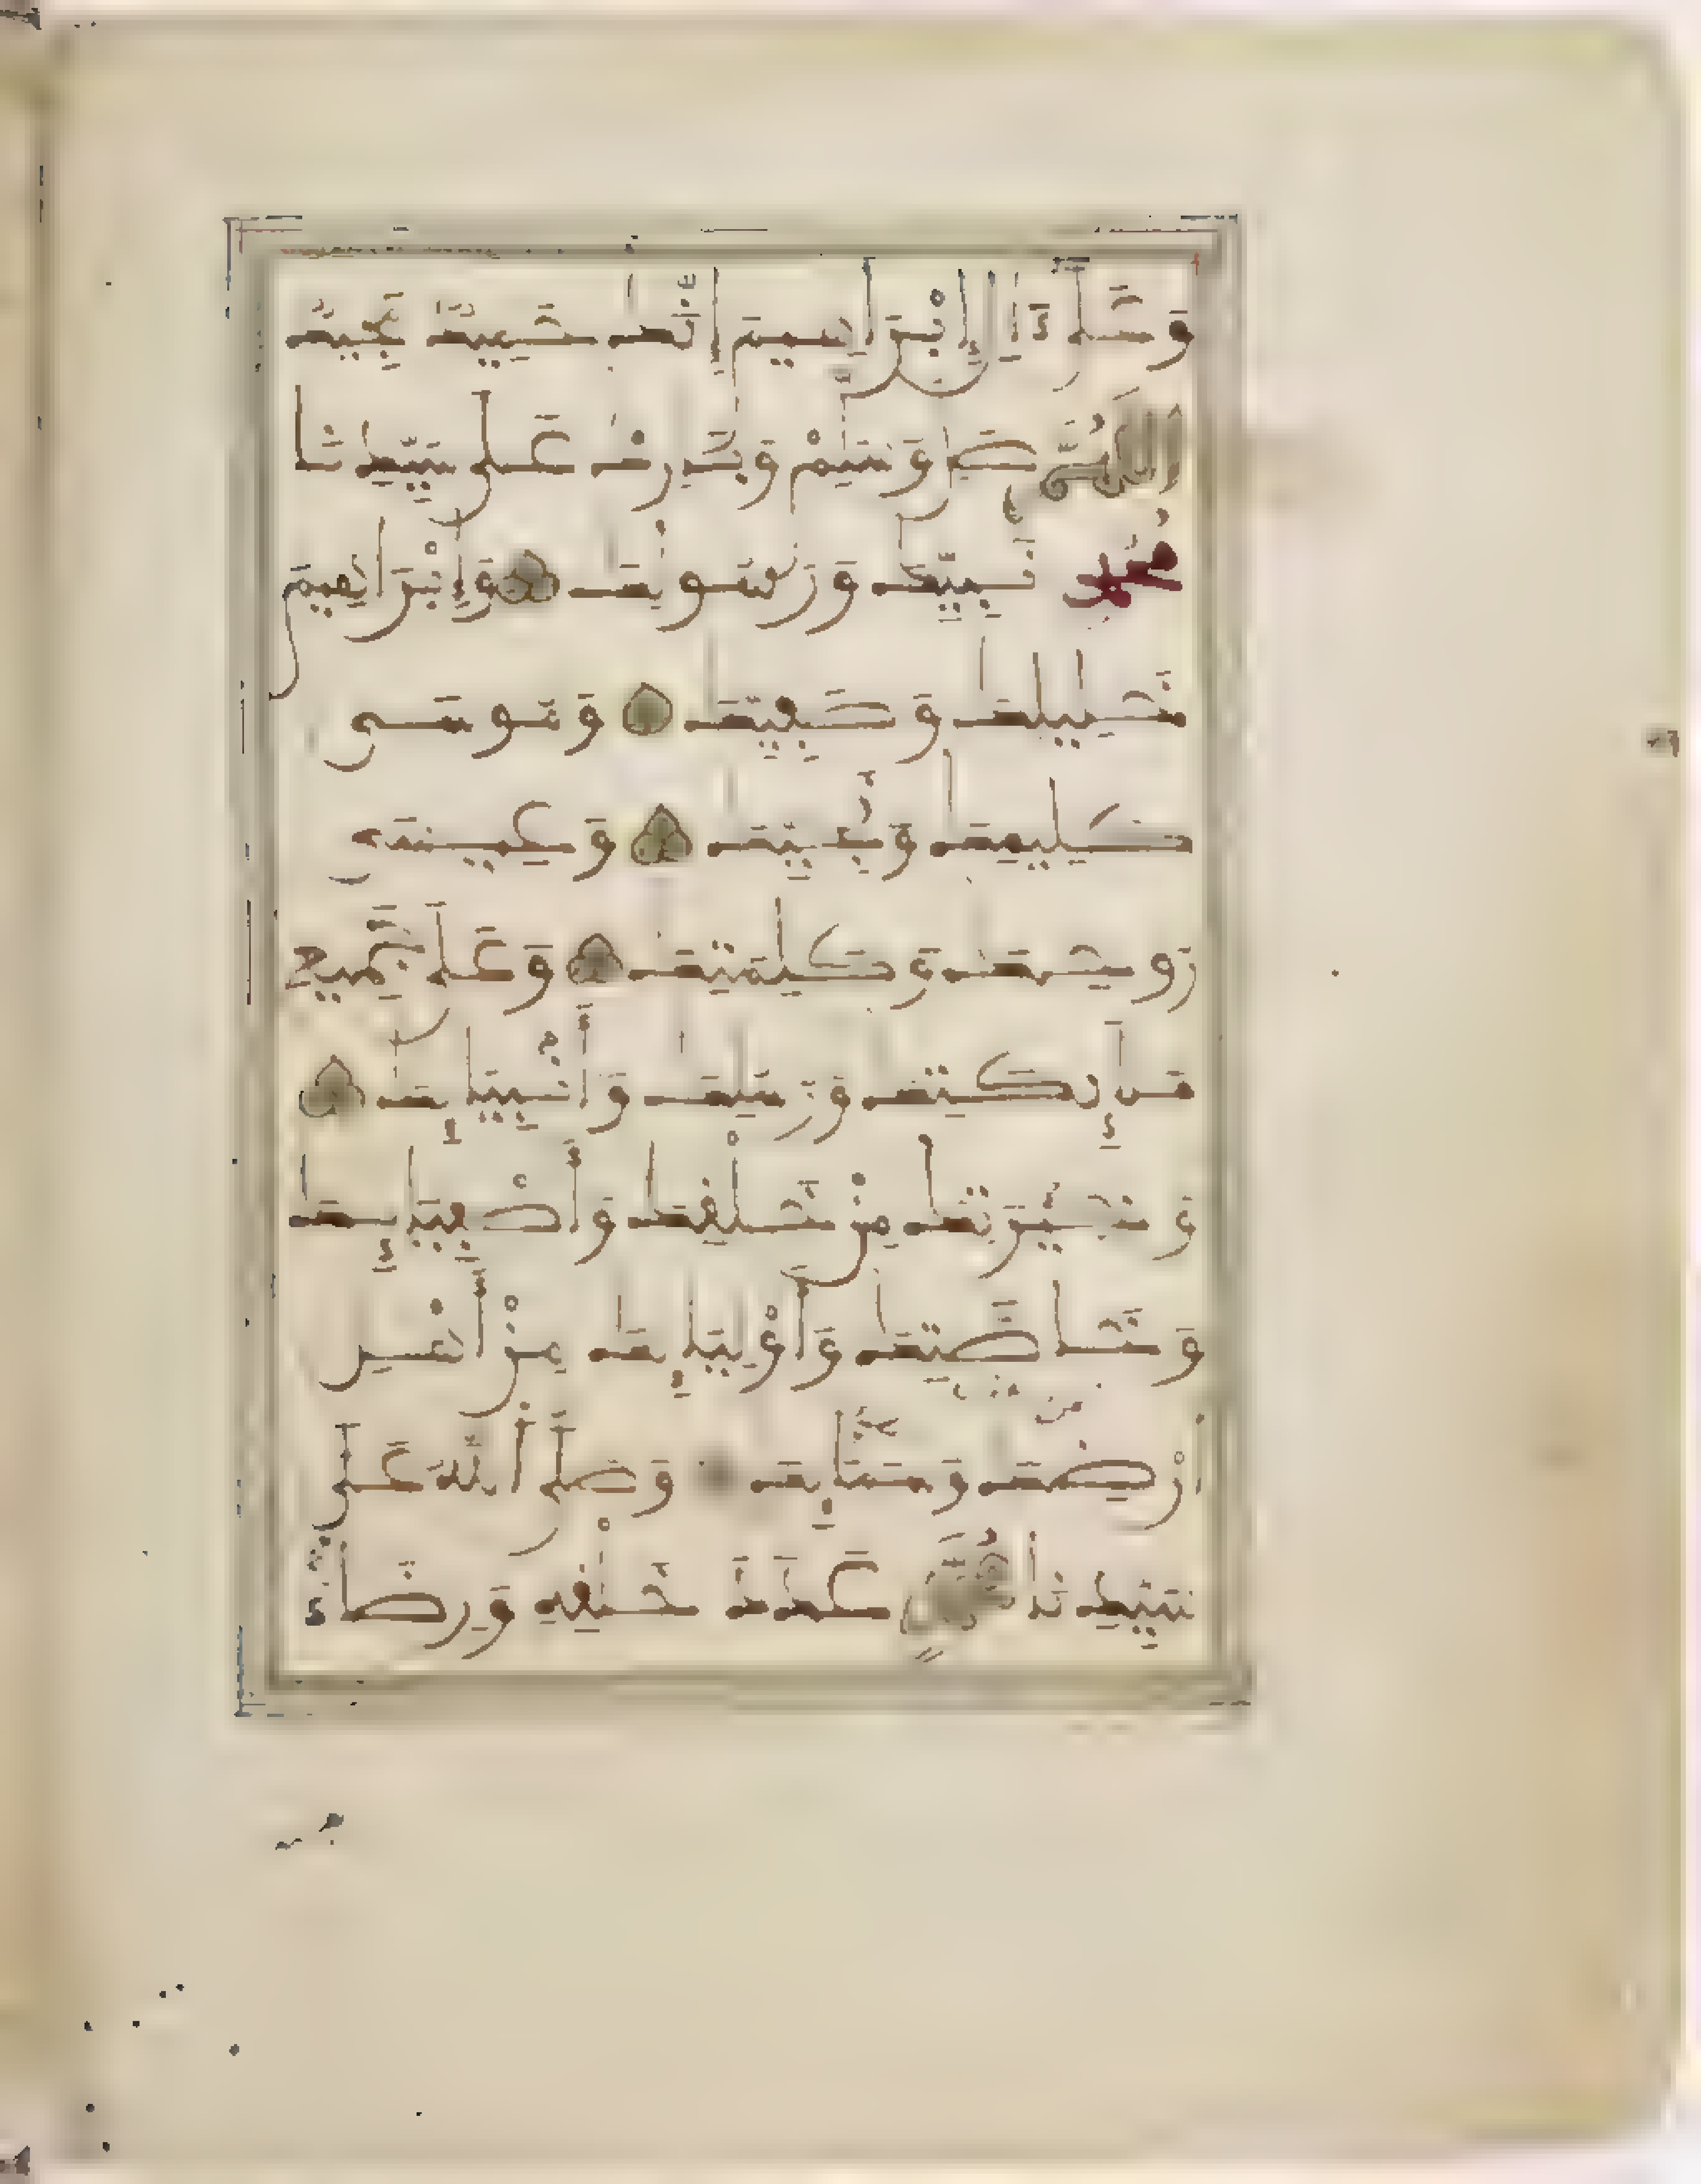 وَعَلَىٰ ءَالِ إِبْرَاهِيمَ إِنَّكَ حَمِيدٌ مَّجِيدٌ
اللَّهُمَّ صَلِّ وَسَلِّمْ وَبَارِكْ عَلَى سَيِّدِنَا
مُحَمَّدٍ نَبِيِّكَ وَرَسُولِكَ وَإِبْرَاهِيمَ
خَلِيلِكَ وَصَفِيِّكَ وَمُوسَى
كَلِيمِكَ وَنَجِيِّكَ وَعِيسَى
رُوحِكَ وَكَلِمَتِكَ وَعَلَى جَمِيعِ
مَلَائِكَتِكَ وَرُسُلِكَ وَأَنْبِيَائِكَ
وَخِيرَتِكَ مِنْ خَلْقِكَ وَأَصْفِيَائِكَ
وَخَاصَّتِكَ وَأَوْلِيَائِكَ مِنْ أَهْلِ
أَرْضِكَ وَسَمَائِكَ وَصَلَّى اللهُ عَلَى
سَيِّدِنَا مُحَمَّدٍ عَدَدَ خَلْقِهِ وَرِضَاءَ